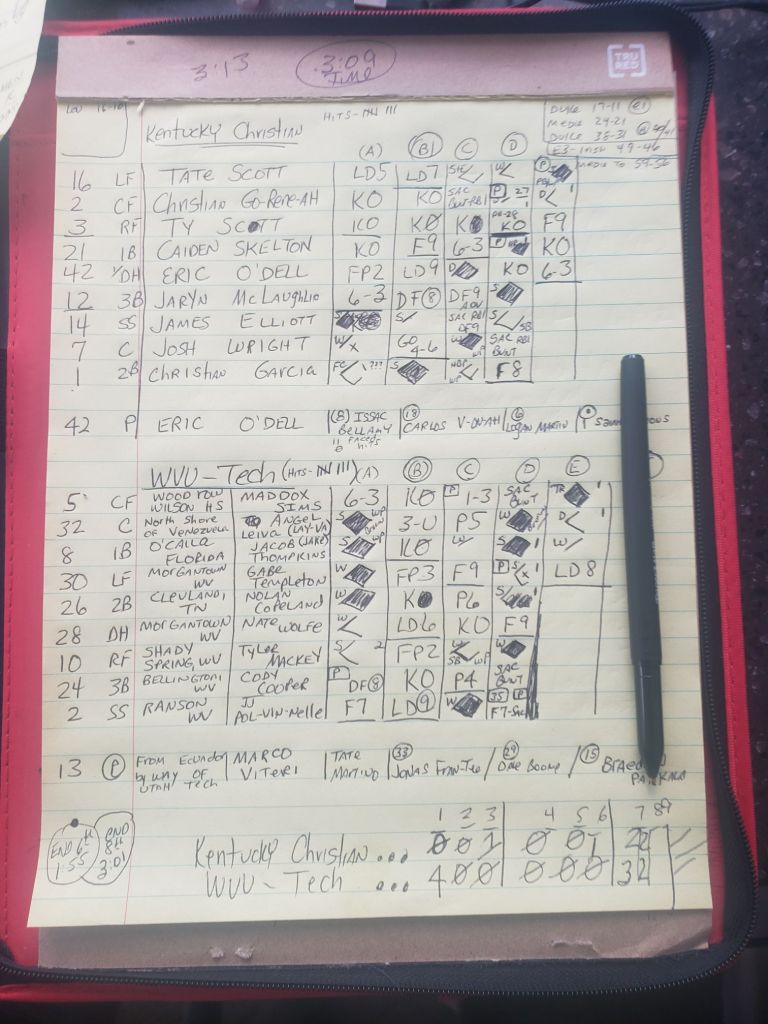 3:13 3:09 TIME
TRU RED
Kentucky Christian HITS - IIII III
DUKE 17-11 E1
MEDIA 29-21
DUKE 38-31
49-46
MEDIA TO 59-56
(A) (B) (C) (D)
16 LF TATE SCOTT LD5 LD7 SH W P
2 CF Christian Go-Rene-AH KO KO SAC BUNT-RBI P 27 D 1
3 RF TY SCOTT KO KO K KO F9
21 1B CAIDEN SKELTON KO F9 6-3 P KO
42 DH ERIC O'DELL FP2 LD9 D KO 6-3
12 3B JARYN McLaughlin 6-3 DF(8) DF9 ADV S
14 SS JAMES ELLIOTT S S/ SAC RBI DF9 S SB
7 C JOSH WRIGHT W/x GO 4-6 W WP SAC RBI BUNT
1 2B Christian Garcia FC ??? S HBP WP F8
42 P ERIC O'DELL (8) ISSAC BELLAMY (18) CARLOS V-ON-AH (6) LOGAN MARTIN
FACED 6 hits
WVU-Tech (HITS - IIII III) (A) (B) (C) (D) (E)
5 CF WOODROW WILSON HS MADDOX SIMS 6-3 KO P 1-3 SAC BUNT TR 1
32 C North Shore of Venezuela ANGEL Leiva (LAY-VA) S WP 3-U P5 W D 1
8 1B O'CALLA FLORIDA JACOB (JAKE) THOMPKINS S WP KO W/ S 1 W/
30 LF MORGANTOWN WV GABE TEMPLETON W FP3 F9 P S/x 1 LD8
26 2B CLEVLAND, TN NOLAN COPELAND W K P6 S
28 DH MORGANTOWN WV NATE WOLFE W LD6 KO F9
10 RF SHADY SPRING, WV TYLER MACKEY S 2 FP2 W SB WP W
24 3B BELLINGTON, WV CODY COOPER P DF(8) KO P4 SAC BUNT
2 SS RANSON WV JJ POL-VIN-Nelle F7 LD9 W 35 P F7-SAC
13 (P) FROM Ecuador by WAY OF UTAH Tech MARCO VITERI TATE MARTINO (33) JONAS (29) DRE BOONE (15) BRAEDON
1 2 3 4 5 6 7 8 9
END 6th 1:55 END 8th 3:01
Kentucky Christian ... 0 0 1 0 0 1 2
WVU-Tech ... 4 0 0 0 0 0 3 2